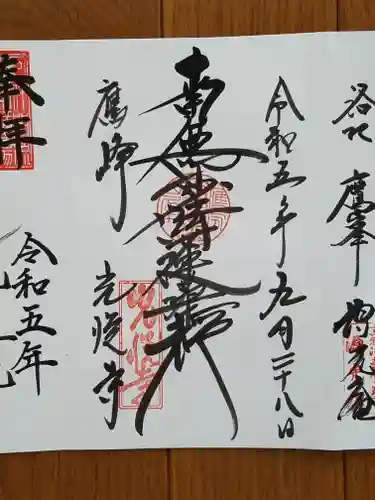 洛北 鷹峯 源光庵
令和五年九月二十八日
南無妙法蓮華経
鷹峰 光悦寺
光悦寺
奉拝
令和五年